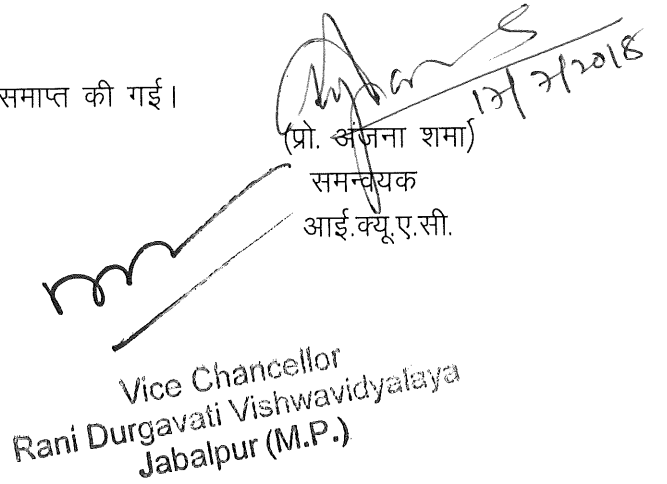 समाप्त की गई।
17/7/2018
(प्रो. अंजना शर्मा)
समन्वयक
आई.क्यू.ए.सी.
Vice Chancellor
Rani Durgavati Vishwavidyalaya
Jabalpur (M.P.)